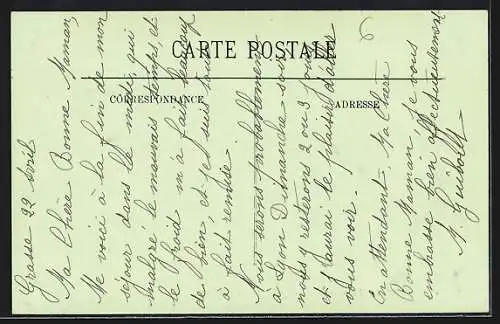 CARTE POSTALE
CORRESPONDANCE
ADRESSE
6
Grasse 22 Avril
Ma Chère Bonne Maman,
Me voici à la fin de mon
séjour dans le midi, qui
malgré le mauvais temps et
le froid m'a fait beaucoup
de bien, et je suis tout
à fait remise.
Nous serons probablement
à Lyon Dimanche soir
nous y resterons 2 ou 3 jours
et j'aurai le plaisir d'aller
vous voir.
En attendant, Ma Chère
Bonne Maman, je vous
embrasse bien affectueusement